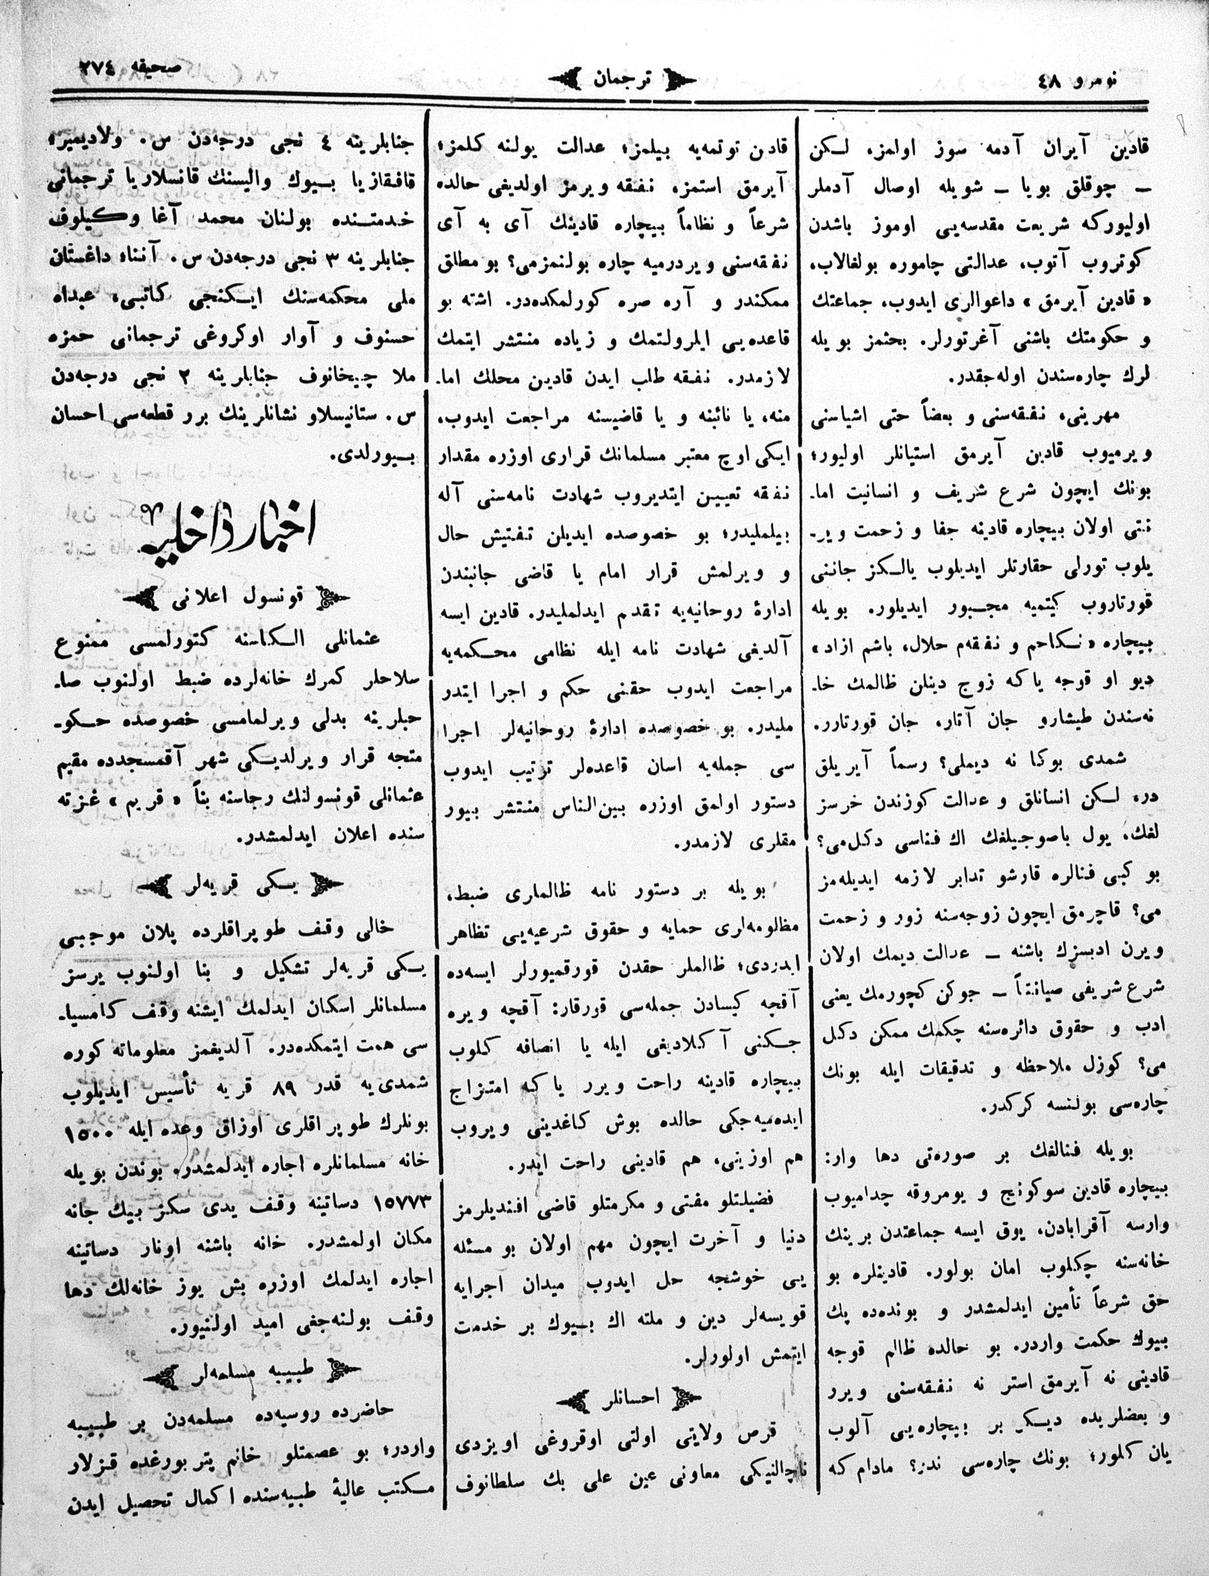 نومرو ٤٨
ترجمان
صحیفه ٢٧٤
قادین آیران آدمه سوز اولمز، لکن
ـ چوقلق بویا ـ شویله اوصال آدملر
اولیورکه شریعت مقدسه‌یی اوموز باشدن
کوتروب آتوب، عدالتی چاموره بولغالاب،
«قادین آیرمق» داعوالری ایدوب، جماعتك
و حکومتك باشنی آغرتورلر. بحثمز بویله
لرك چاره‌سندن اوله‌جقدر.
مهرینی، نفقه‌سنی و بعضاً حتی اشیاسنی
ویرمیوب قادین آیرمق استیانلر اولیور؛
بونك ایچون شرع شریف و انسانیت اما-
نتی اولان بیچاره قادینه جفا و زحمت ویر-
یلوب تورلی حقارتلر ایدیلوب یالکز جاننی
قورتاروب کیتمیه مجبور ایدیلور. بویله
بیچاره «نکاحم و نفقه‌م حلال، باشم ازاد»
دیو او قوجه یا که زوج دینلن ظالمك خا-
نه‌سندن طیشارو جان آتار، جان قورتارر.
شمدی بوکا نه دیملی؟ رسماً آیریلق
در، لکن انسانلق و عدالت کوزندن خرسز
لغك، یول باصوجیلغك اك فناسی دکل‌می؟
بو کبی فنالره قارشو تدابر لازمه ایدیله‌مز
می؟ قاچرمق ایچون زوجه‌سنه زور و زحمت
ویرن ادبسزك باشنه ـ عدالت دیمك اولان
شرع شریفی صیانتاً ـ جوکن کچورمك یعنی
ادب و حقوق دائره‌سنه چکمك ممکن دکل
می؟ کوزل ملاحظه و تدقیقات ایله بونك
چاره‌سی بولنسه کرکدر.
بویله فنالغك بر صورتی دها وار:
بیچاره قادین سوکونج و یومروقه چدامیوب
وارسه آقرابادن، یوق ایسه جماعتدن برینك
خانه‌سنه چکلوب امان بولور. قادینلره بو
حق شرعاً تأمین ایدلمشدر و بونده‌ده پك
بیوك حکمت واردر. بو حالده ظالم قوجه
قادینی نه آیرمق استر نه نفقه‌سنی ویرر
و بعضلریده دیکر بر بیچاره‌یی آلوب
یان کلور؛ بونك چاره‌سی ندر؟ مادام که
قادن توتمه‌یه بیلمز؛ عدالت یولنه کلمز؛
آیرمق استمز، نفقه ویرمز اولدیغی حالده
شرعاً و نظاماً بیچاره قادینك آی به آی
نفقه‌سنی ویردرمیه چاره بولنمزمی؟ بو مطلق
ممکندر و آره صره کورلمکده‌در. اشته بو
قاعده‌یی ایلرولتمك و زیاده منتشر ایتمك
لازمدر. نفقه طلب ایدن قادین محلك اما-
منه، یا نائبنه و یا قاضیسنه مراجعت ایدوب،
ایکی اوچ معتبر مسلمانك قراری اوزره مقدار
نفقه تعیین ایتدیروب شهادت نامه‌سنی آله
بیلملیدر؛ بو خصوصده ایدیلن تفتیش حال
و ویرلمش قرار امام یا قاضی جانبندن
ادارۀ روحانیه‌یه تقدم ایدلملیدر. قادین ایسه
آلدیغی شهادت نامه ایله نظامی محکمه‌یه
مراجعت ایدوب حقنی حکم و اجرا ایتدر
ملیدر. بو خصوصده ادارۀ روحانیه‌لر اجرا
سی جمله‌یه اسان قاعده‌لر ترتیب ایدوب
دستور اولمق اوزره بین‌الناس منتشر بیور
مقلری لازمدر.
بویله بر دستور نامه ظالملری ضبط،
مظالومه‌لری حمایه و حقوق شرعیه‌یی تظاهر
ایدردی؛ ظالملر حقدن قورقمیورلر ایسه‌ده
آقچه کیسادن جمله‌سی قورقار: آقچه ویره
جکنی آکلادیغی ایله یا انصافه کلوب
بیچاره قادینه راحت ویرر یا که امتزاج
ایده‌میه‌جکی حالده بوش کاغدینی ویروب
هم اوزینی، هم قادینی راحت ایدر.
فضیلتلو مفتی و مکرمتلو قاضی افندیلرمز
دنیا و آخرت ایچون مهم اولان بو مسئله
یی خوشجه حل ایدوب میدان اجرایه
قویسه‌لر دین و ملته اك بیوك بر خدمت
ایتمش اولورلر.
احسانلر
قرص ولایتی اولتی اوقروغی اویزدی
ناچالنیکی معاونی عین علی بك سلطانوف
جنابلرینه ٤ نجی درجه‌دن س. ولادیمیر؛
قافقازیا بیوك والیسنك قانسلاریا ترجمانی
خدمتنده بولنان محمد آغا وکیلوف
جنابلرینه ٣ نجی درجه‌دن س. آننا؛ داغستان
ملی محکمه‌سنك ایکنجی کاتبی، عبداه
حسنوف و آوار اوکروغی ترجمانی حمزه
ملا چیخانوف جنابلرینه ٢ نجی درجه‌دن
س. ستانیسلاو نشانلرینك برر قطعه‌سی احسان
بیورلدی.
اخبار داخلیه
قونسول اعلانی
عثمانلی الکاسنه کتورلمسی ممنوع
سلاحلر کمرك خانه‌لرده ضبط اولنوب صا-
حبلرینه بدلی ویرلمامسی خصوصده حکو-
متجه قرار ویرلدیکی شهر آقمسجدده مقیم
عثمانلی قونسولنك رجاسنه بناً «قریم» غزته
سنده اعلان ایدلمشدر.
یکی قریه‌لر
خالی وقف طوپراقلرده پلان موجبی
یکی قریه‌لر تشکیل و بنا اولنوب یرسز
مسلمانلر اسکان ایدلمك ایشنه وقف کامسیا-
سی همت ایتمکده‌در. آلدیغمز معلوماته کوره
شمدی‌یه قدر ٨٩ قریه تأسیس ایدیلوب
بونلرك طوپراقلری اوزاق وعده ایله ١٥٠٠
خانه مسلمانلره اجاره ایدلمشدر. بوندن بویله
١٥٧٧٣ دساتینه وقف یدی سکز بیك جانه
مکان اولمشدر. خانه باشنه اونار دساتینه
اجاره ایدلمك اوزره بش یوز خانه‌لك دها
وقف بولنه‌جغی امید اولنیور.
طبیبه مسلمه‌لر
حاضرده روسیه‌ده مسلمه‌دن بر طبیبه
واردر؛ بو عصمتلو خانم پتربورغده قزلار
مکتب عالیۀ طبیه‌سنده اکمال تحصیل ایدن